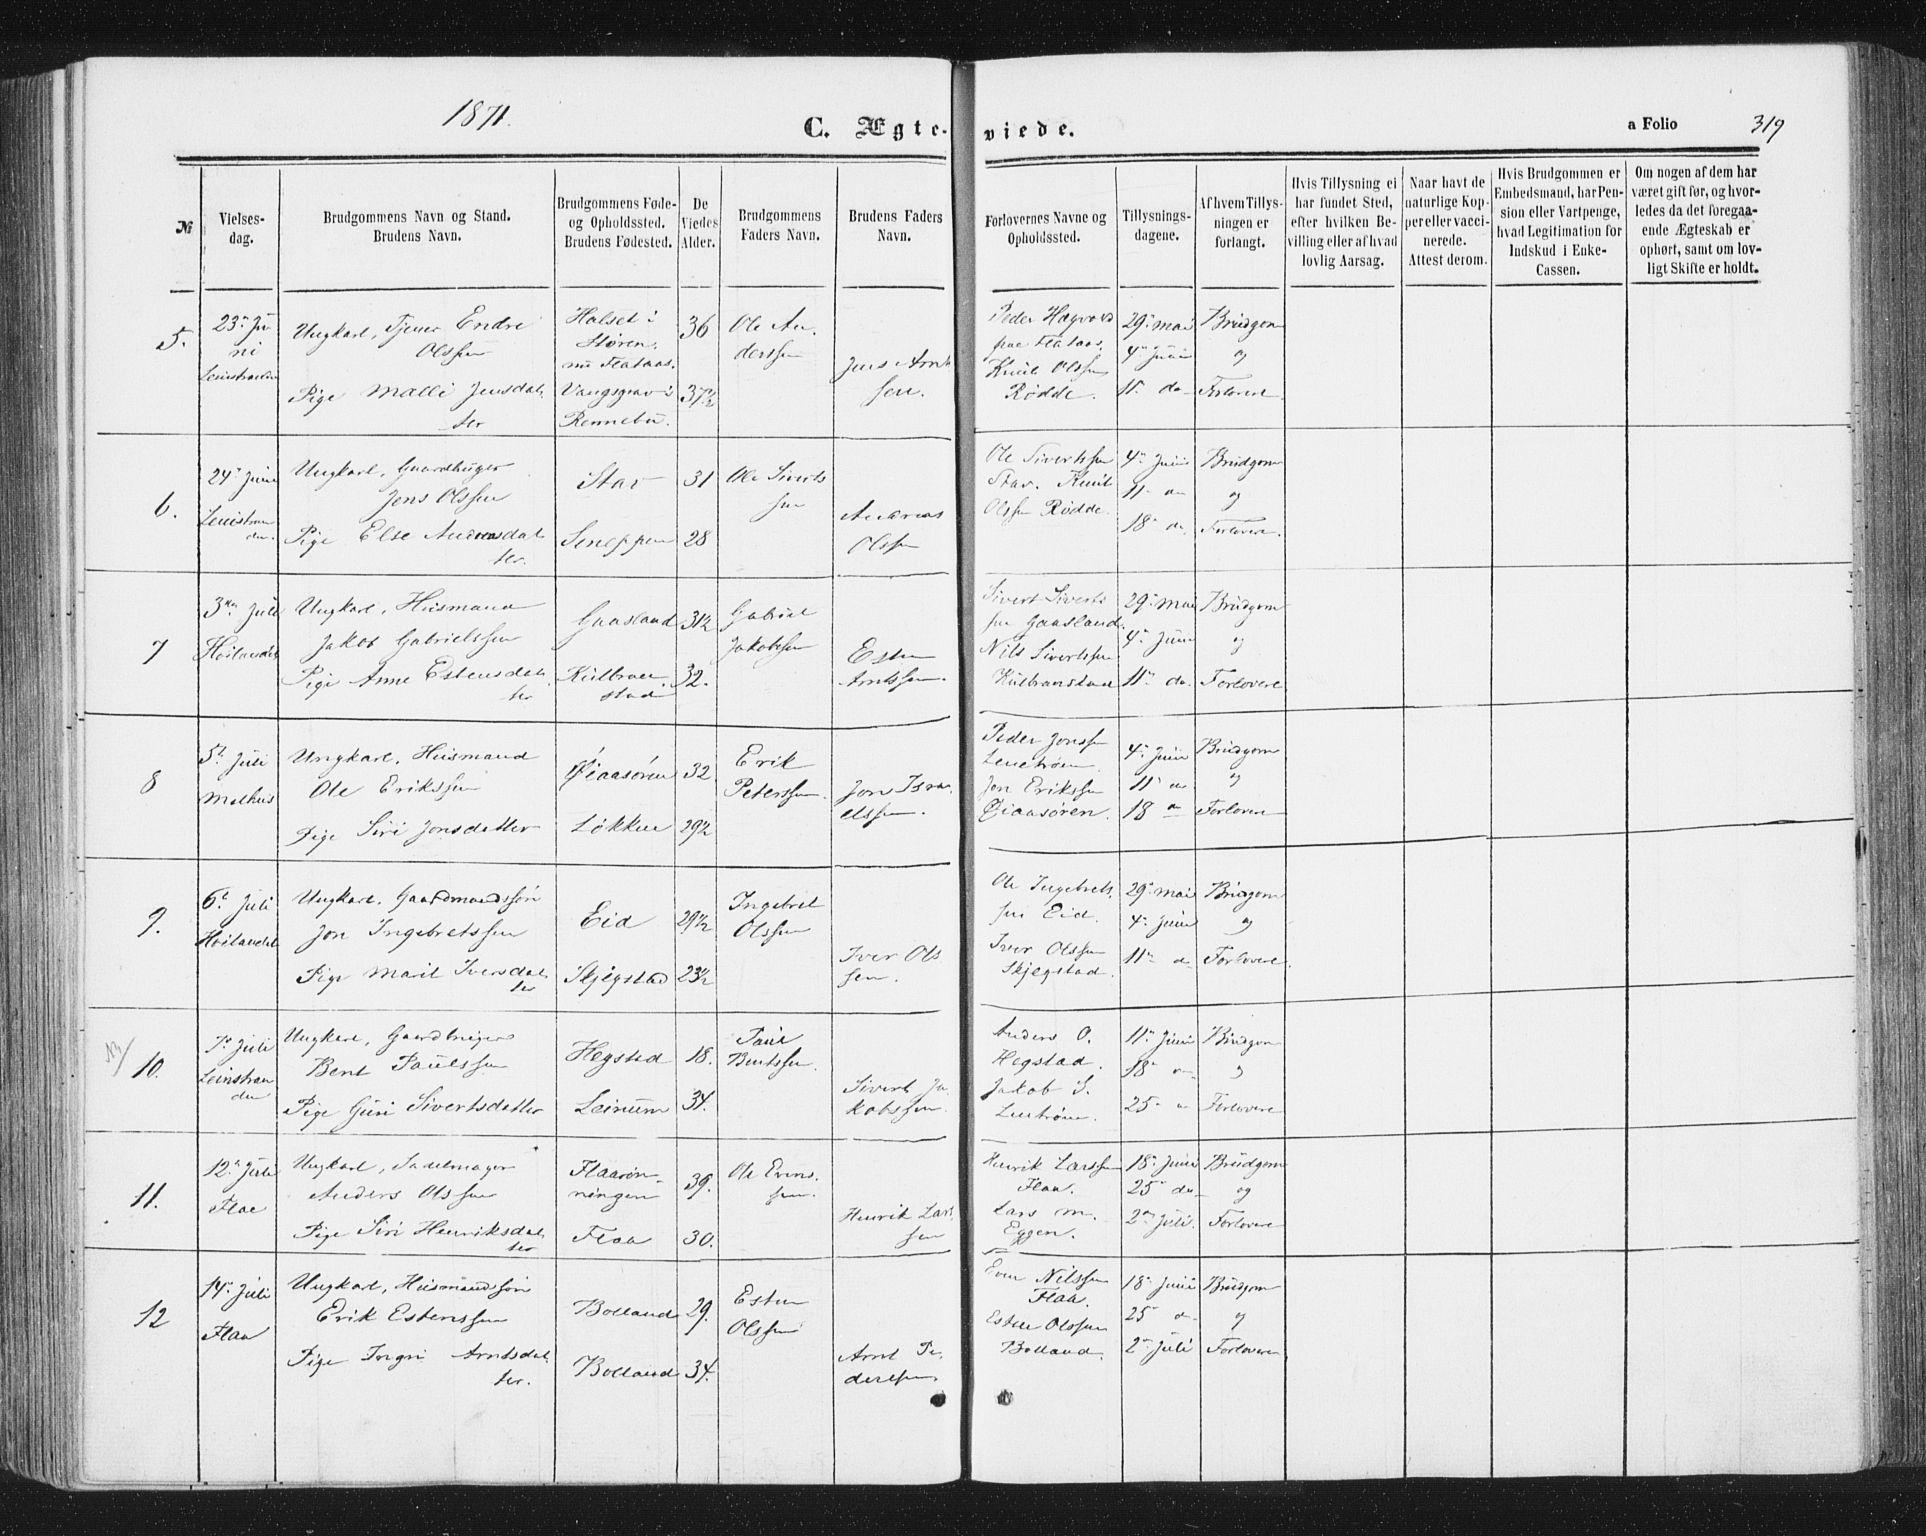 1871.
C. Ægte-
viede.
a Folio 319
№
Vielses-
dag.
Brudgommens Navn og Stand.
Brudens Navn.
Brudgommens Føde-
og Opholdssted.
Brudens Fødested.
De
Viedes
Alder.
Brudgommens
Faders Navn.
Brudens Faders
Navn.
Forlovernes Navne og
Opholdssted.
Tillysnings-
dagene.
Af hvem Tillys-
ningen er
forlangt.
Hvis Tillysning ei
har fundet Sted,
efter hvilken Be-
villing eller af hvad
lovlig Aarsag.
Naar havt de
naturlige Kop-
per eller vacci-
nerede.
Attest derom.
Hvis Brudgommen er
Embedsmand, har Pen-
sion eller Vartpenge,
hvad Legitimation for
Indskud i Enke-
Cassen.
Om nogen af dem har
været gift før, og hvor-
ledes da det foregaa-
ende Ægteskab er
ophørt, samt om lov-
ligt Skifte er holdt.
5.
23de Ju
ni
Leinstranden
Ungkarl, Tjener Endre
Olssen
Pige Malli Jensdat
ter
Halset i
Støren,
nu Flataas.
Vangsgrav i
Rennebu.
36
37½
Ole An
derssen
Jens Arnt
sen.
Peder Hagvard
Flataas.
Knut Olssen
Rødde.
29. Mai
4. Juni
11. do
Brudgom
og
Forlovere
6.
24. Juni
Leinstran
den.
Ungkarl, Gaardbruger
Jens Olssen
Pige Else Andreasdat
ter.
Stav
Sneppen
31
28
Ole Siverts
sen
Andreas
Olssen
Ole Sivertssen
Stav. Knut
Olssen Rødde.
4. Juni
11. do
18. do.
Brudgom
og
Forlovere.
7
3die Juli
Høilandet
Ungkarl, Husmand
Jakob Gabrielssen
Pige Anne Estensdat
ter
Gaasland
Kulbran
stad
31½
32.
Gabriel
Jakobssen
Esten
Arntssen.
Sivert Siverts
sen Gaasland.
Nils Sivertssen
Kulbranstad
29. Mai
4. Juni
11. do.
Brudgom
og
Forlovere
8
5. Juli
Melhus
Ungkarl, Husmand
Ole Erikssen
Pige Siri Jonsdatter
Øiaasøren
Løkken
32
29½
Erik
Peterssen.
Jon Isra
elssen.
Peder Jonssen
Jon Erikssen
Øiaasøren.
4. Juni
11. do.
18 do
Brudgom
og
Forlovere
9.
6. Juli
Høilandet
Ungkarl, Gaardmandssøn
Jon Ingebretssen
Pige Marit Iversdat
ter
Eid
Skjegstad
29½
23½
Ingebret
Olssen
Iver Ols
sen.
Ole Ingebrets
sen Eid.
Iver Olssen
Skjegstad.
29. Mai
4. Juni
11. do
Brudgom
og
Forlovere.
10.
7. Juli
Leinstran
den
Ungkarl, Gaardbruger
Bent Paulssen
Pige Guri Sivertsdatter
Hegstad
Leinum
18.
34.
Paul
Bentssen.
Sivert Ja
kobssen.
Anders O.
Hegstad.
Jakob S.
11. Juni
18. do
25. do
Brudgom
og
Forlovere
11.
12. Juli
Flaa
Ungkarl, Sadelmager
Anders Olssen
Pige Siri Henriksdat
ter
Flaarøn
ningen
Flaa
39.
30.
Ole Evens
sen.
Henrik Lars
sen
Henrik Larssen
Flaa.
Lars M.
Eggen.
18. Juni
25 do
2. Juli.
Brudgom
og
Forlovere
12
14. Juli
Flaa
Ungkarl, Husmandssøn
Erik Estenssen
Pige Ingri Arntsdat
ter.
Bolland
Bolland
29.
34.
Esten
Olssen
Arnt Pe
derssen
Even Nilssen
Flaa.
Esten Olssen
Bolland.
18. Juni
25 do
2. Juli
Brudgom
og
Forlovere